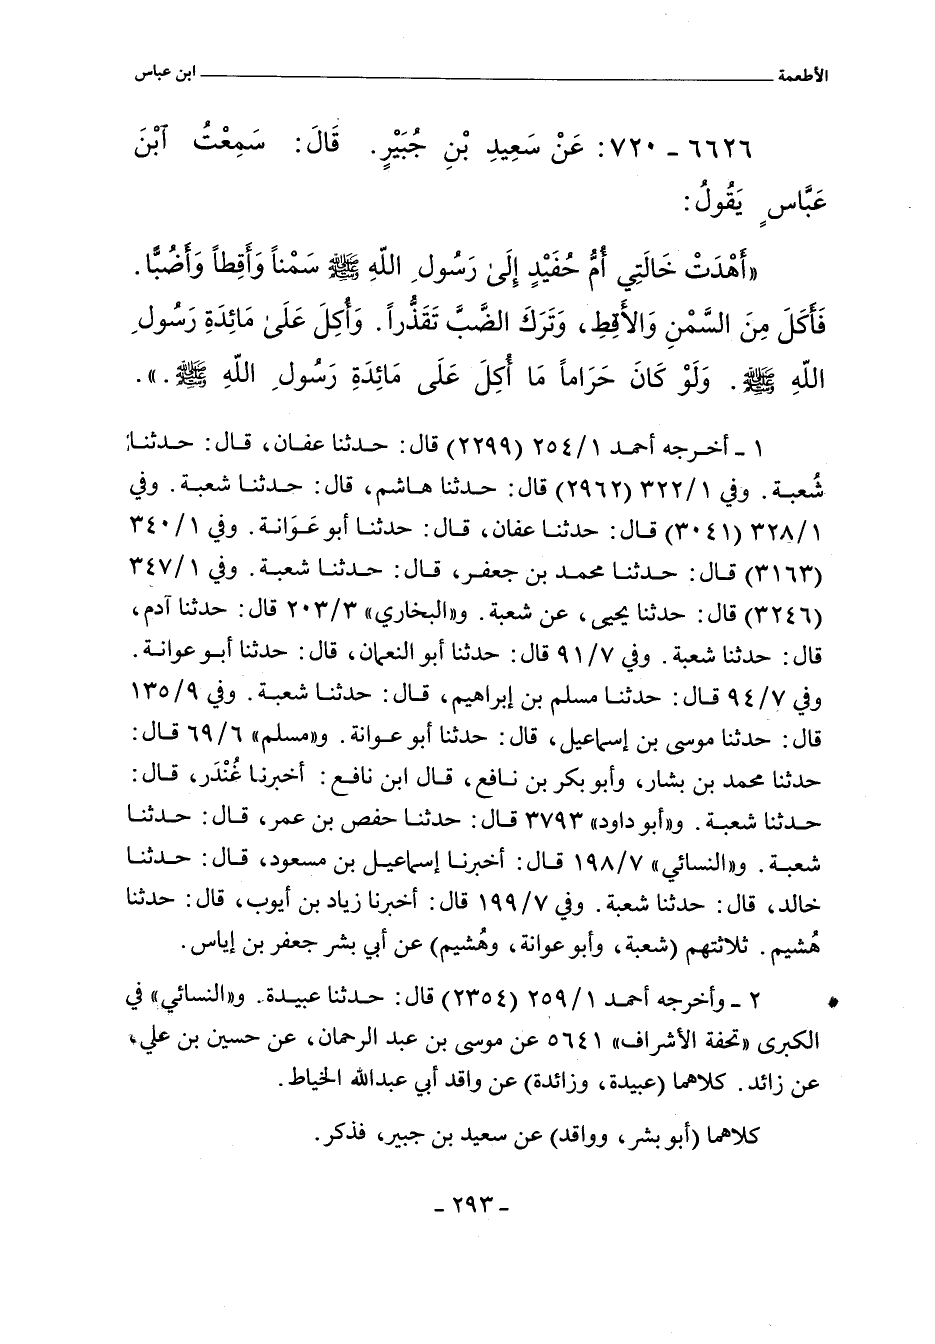 الأطعمة ابن عباس
٦٦٢٦ ـ ٧٢٠: عَنْ سَعِيدِ بْنِ جُبَيْرٍ. قَالَ: سَمِعْتُ ٱبْنَ
عَبَّاسٍ يَقُولُ:
«أَهْدَتْ خَالَتِي أُمُّ حُفَيْدٍ إِلَىٰ رَسُولِ اللّهِ ﷺ سَمْناً وَأَقِطاً وَأَضُبًّا.
فَأَكَلَ مِنَ السَّمْنِ وَالأَقِطِ، وَتَرَكَ الضَّبَّ تَقَذُّراً. وَأُكِلَ عَلَىٰ مَائِدَةِ رَسُولِ
اللّهِ ﷺ. وَلَوْ كَانَ حَرَاماً مَا أُكِلَ عَلَى مَائِدَةِ رَسُولِ اللّهِ ﷺ.».
١ ـ أخرجه أحمد ٢٥٤/١ (٢٢٩٩) قال: حدثنا عفان، قال: حدثنا
شُعبة. وفي ٣٢٢/١ (٢٩٦٢) قال: حدثنا هاشم، قال: حدثنا شعبة. وفي
٣٢٨/١ (٣٠٤١) قال: حدثنا عفان، قال: حدثنا أبو عَوَانة. وفي ٣٤٠/١
(٣١٦٣) قال: حدثنا محمد بن جعفر، قال: حدثنا شعبة. وفي ٣٤٧/١
(٣٢٤٦) قال: حدثنا يحيى، عن شعبة. و«البخاري» ٢٠٣/٣ قال: حدثنا آدم،
قال: حدثنا شعبة. وفي ٩١/٧ قال: حدثنا أبو النعمان، قال: حدثنا أبو عوانة.
وفي ٩٤/٧ قال: حدثنا مسلم بن إبراهيم، قال: حدثنا شعبة. وفي ١٣٥/٩
قال: حدثنا موسى بن إسماعيل، قال: حدثنا أبو عوانة. و«مسلم» ٦٩/٦ قال:
حدثنا محمد بن بشار، وأبو بكر بن نافع، قال ابن نافع: أخبرنا غُنْدَر، قال:
حدثنا شعبة. و«أبو داود» ٣٧٩٣ قال: حدثنا حفص بن عمر، قال: حدثنا
شعبة. و«النسائي» ١٩٨/٧ قال: أخبرنا إسماعيل بن مسعود، قال: حدثنا
خالد، قال: حدثنا شعبة. وفي ١٩٩/٧ قال: أخبرنا زياد بن أيوب، قال: حدثنا
هُشيم. ثلاثتهم (شعبة، وأبو عوانة، وهُشيم) عن أبي بشر جعفر بن إياس.
٢ ـ وأخرجه أحمد ٢٥٩/١ (٢٣٥٤) قال: حدثنا عبيدة. و«النسائي» في
الكبرى «تحفة الأشراف» ٥٦٤١ عن موسى بن عبد الرحمان، عن حسين بن علي،
عن زائد. كلاهما (عبيدة، وزائدة) عن واقد أبي عبدالله الخياط.
كلاهما (أبو بشر، وواقد) عن سعيد بن جبير، فذكر.
ـ ٢٩٣ ـ